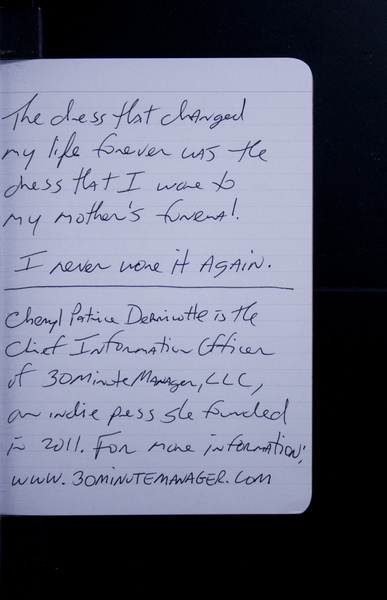 The dress that changed
my life forever was the
dress that I wore to
my mother's funeral.
I never wore it AGAIN.
Cheryl Patrice Derricotte is the
Chief Information Officer
of 30MinuteManager, LLC,
an indie press she founded
in 2011. For more information:
www.30MINUTEMANAGER.COM